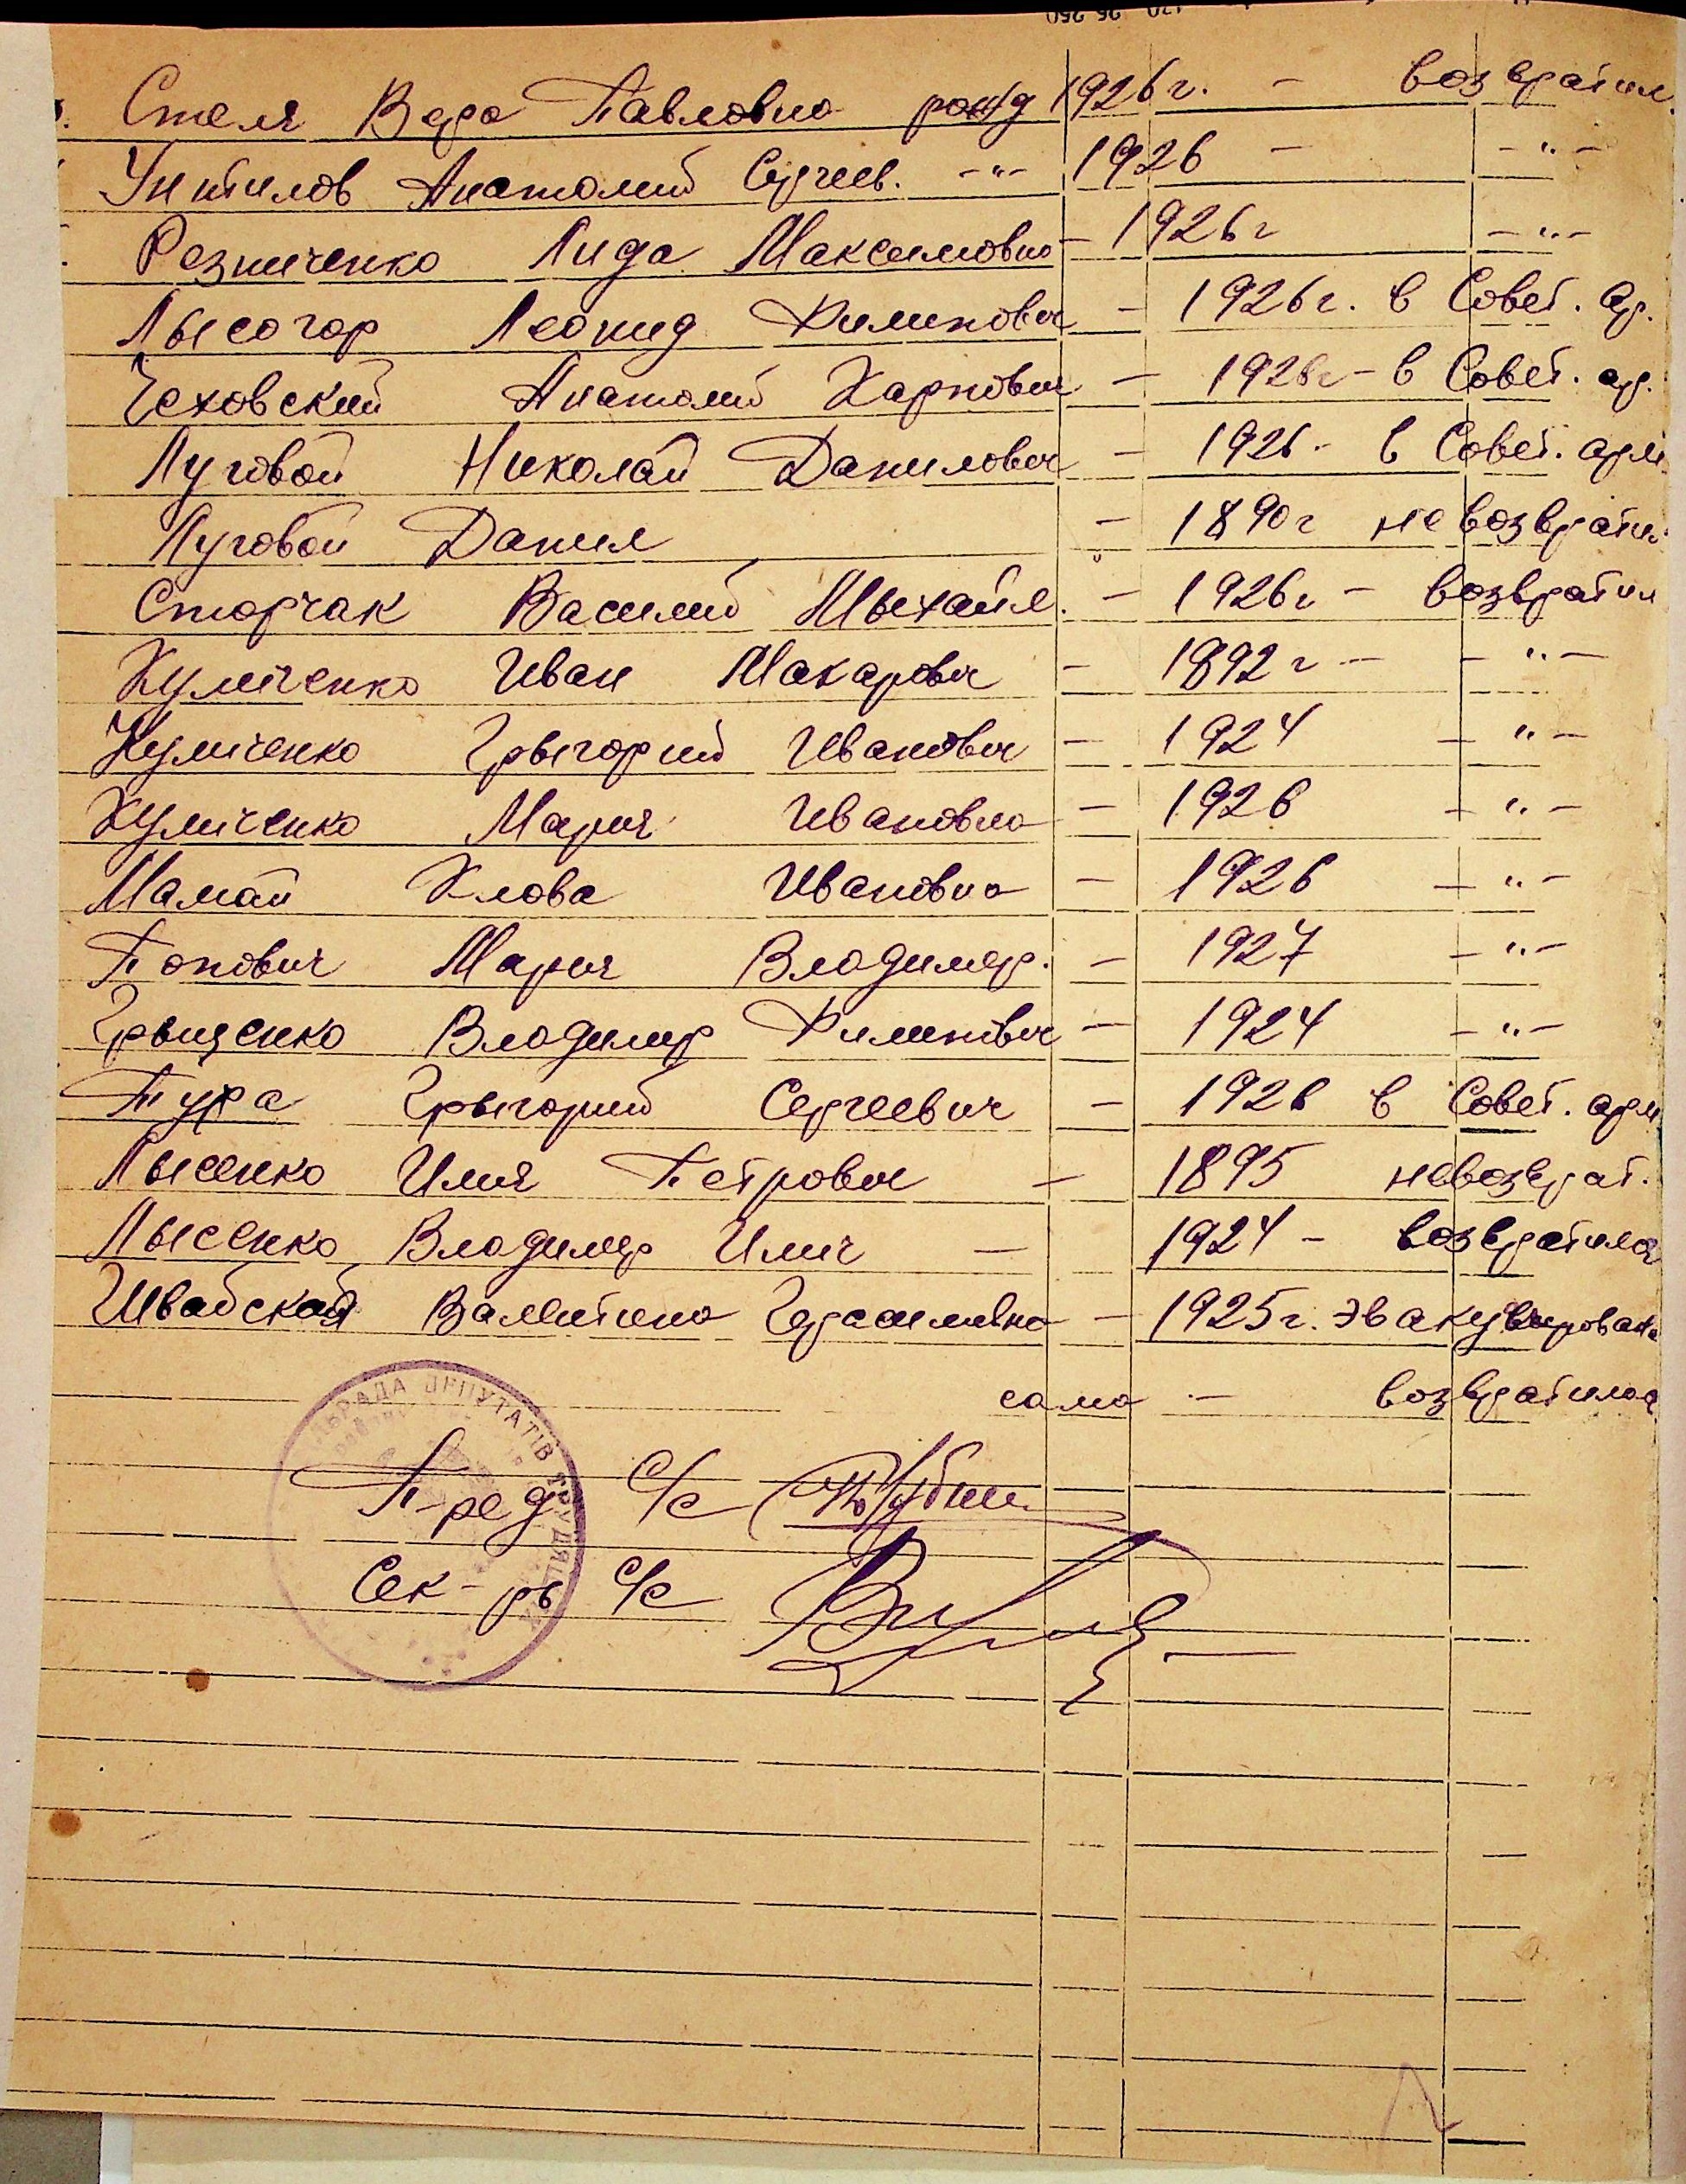 Стеля Вера Павловна рожд 1926 г. - возвратил.
Анатолий Сергеев. -"- 1926 - -"-
Резниченко Лида Максимовна - 1926 г -"-
Лысогор Леонид Филипович - 1926 г. в Совет. ар.
Чеховский Анатолий Карпович - 1926 г - в Совет. ар.
Луговой Николай Данилович - 1926 - в Совет. арм.
Луговой Данил - 1890 г не возврати
Сторчак Василий Мыхайл. - 1926 г - возвратил
Куличенко Иван Макарович - 1892 г - -"-
Куличенко Грыгорий Иванович - 1924 -"-
Куличенко Мария Ивановна - 1926 -"-
Мамай Клова Ивановна - 1926 -"-
Попович Мария Владимир. - 1927 -"-
Грыценко Владимир Филипович - 1924 -"-
Пура Грыгорий Сергеевич - 1926 в Совет. арм
Лысенко Илия Петрович - 1895 невозврат.
Лысенко Владимир Илич - 1924 - возвратился
Швабская Валентина Герасимивна - 1925 г. эвакуирована
сама - возвратилась
РАДА ДЕПУТАТІВ ТРУДЯЩ
Пред с/с
Сек-рь с/с